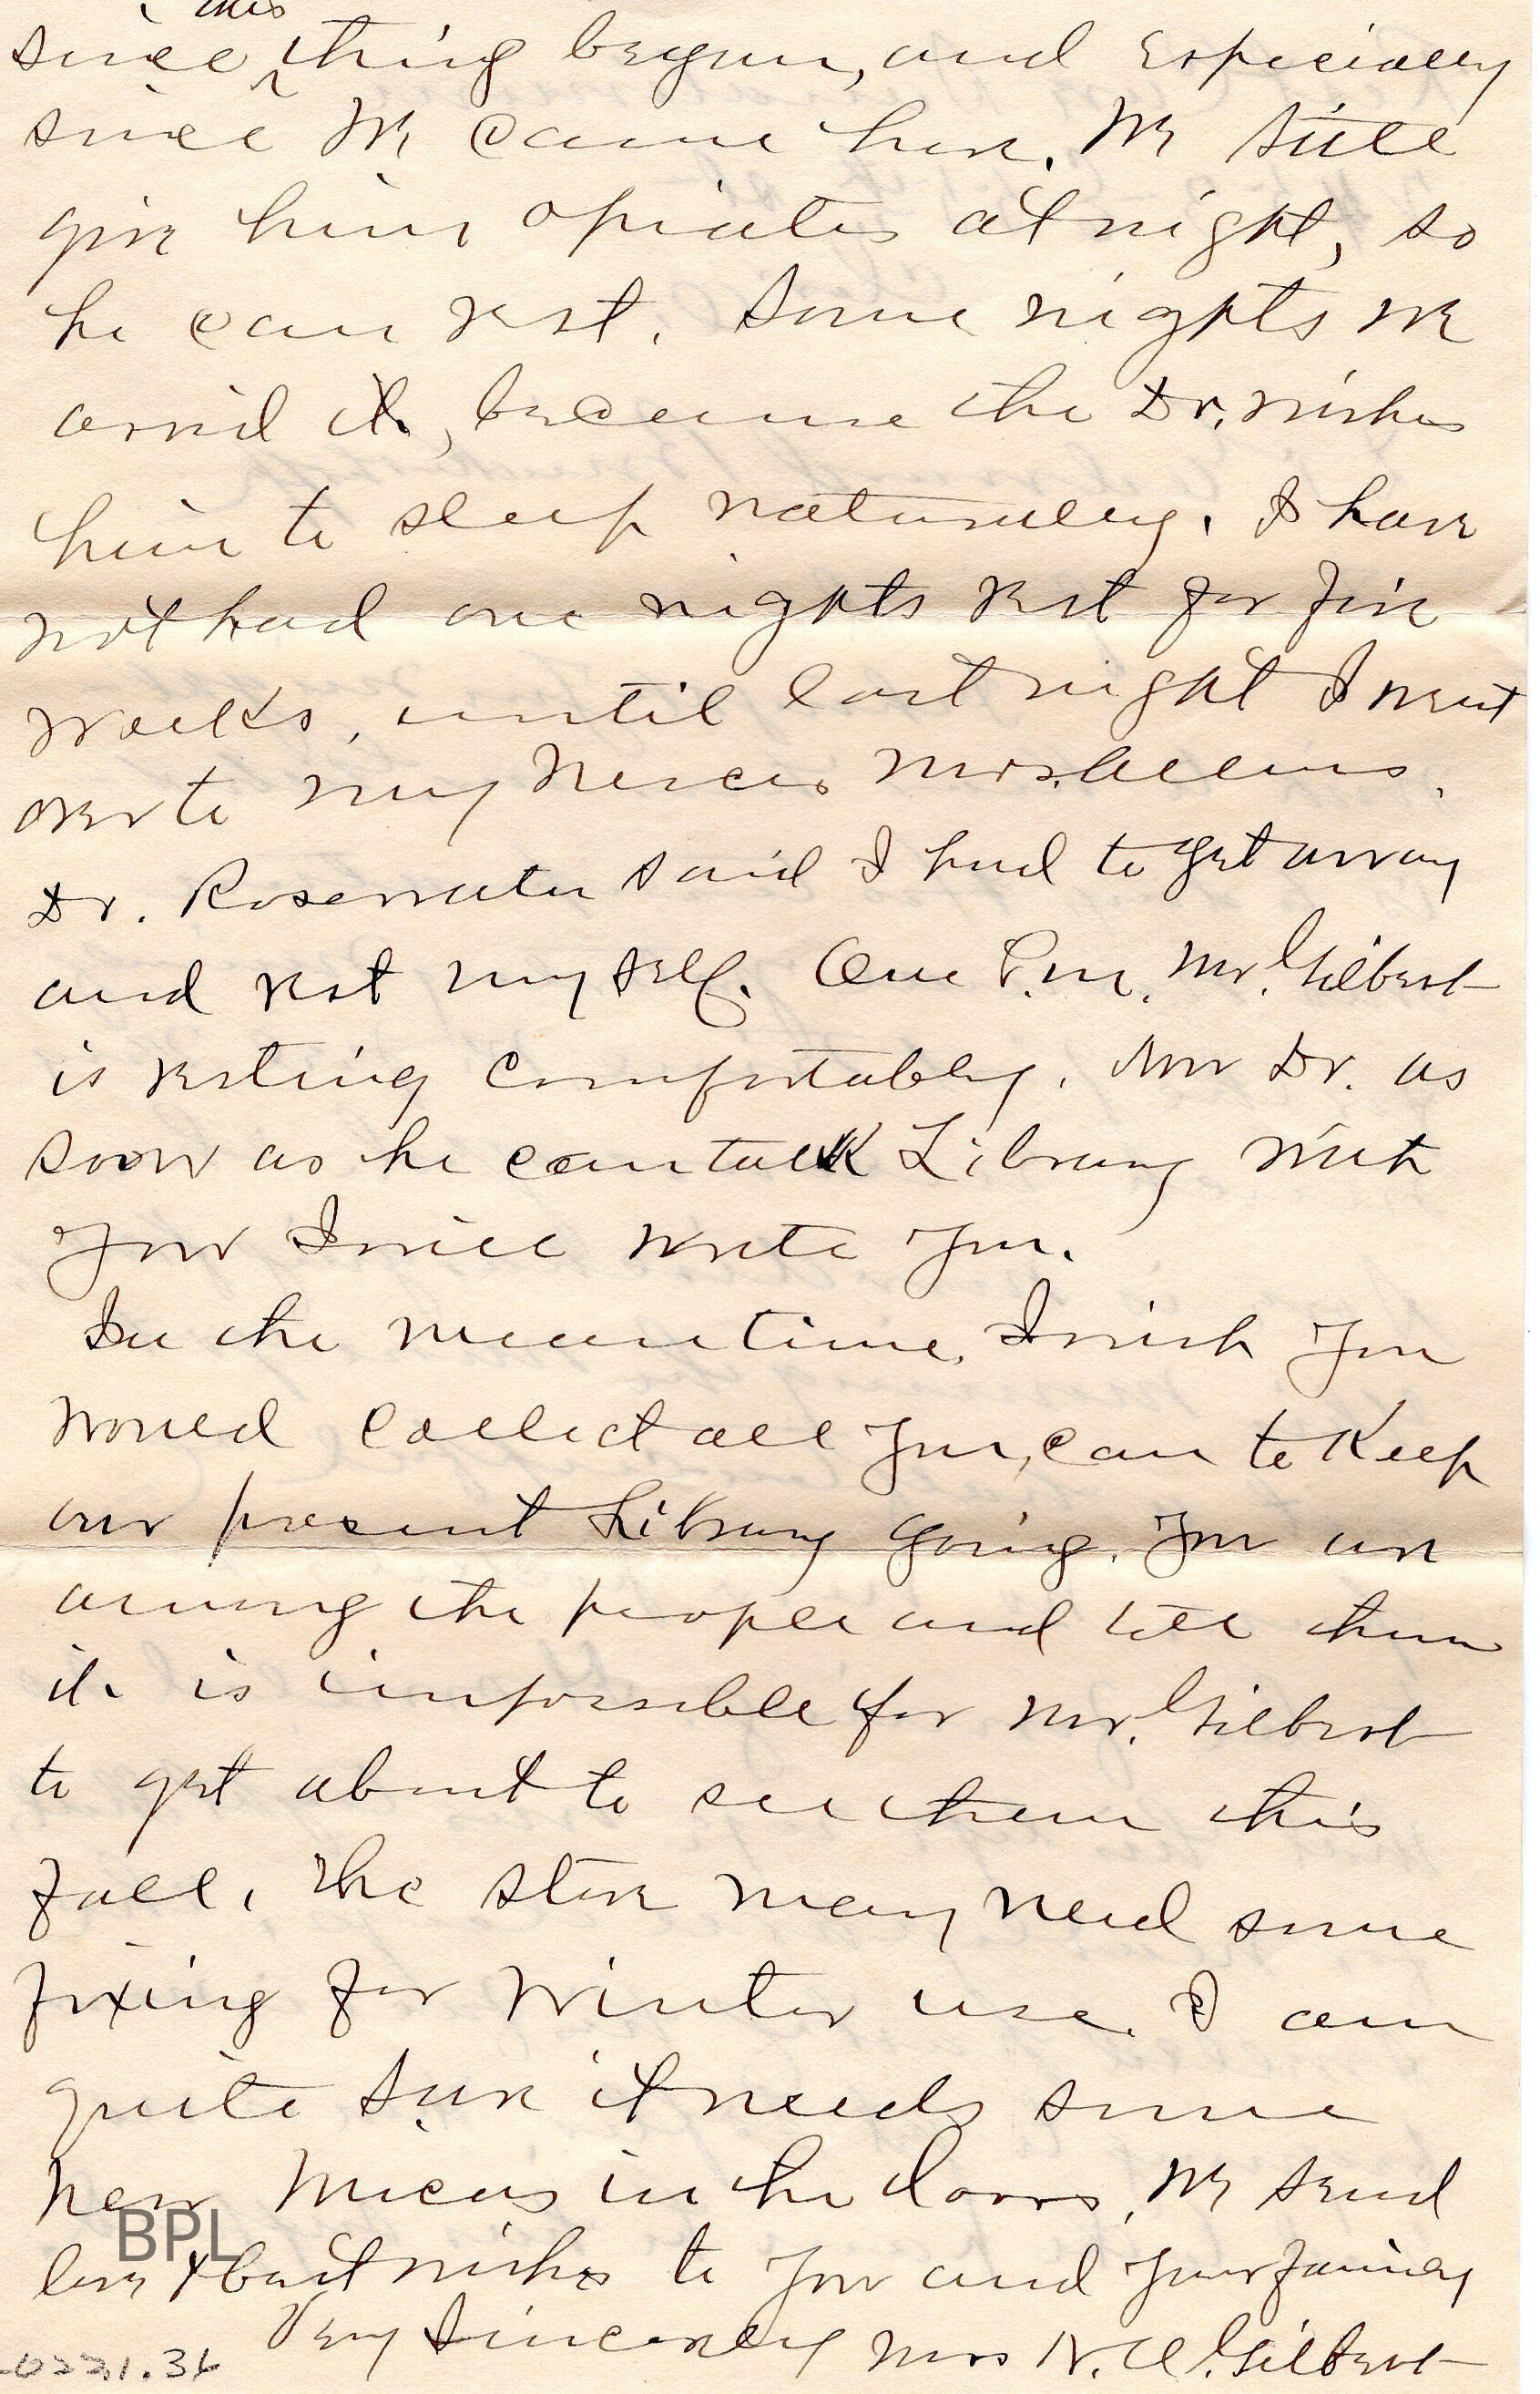 this
since ^ thing begun, and especially
since we came here. We still
give him opiates at night, so
he can rest. Some nights we
avoid it, because the Dr. wishes
him to sleep naturally. I have
not had one nights rest for five
weeks, until last night I went
over to my Neices Mrs.
Dr. Rosewater said I had to get away
and rest myself. One P.m. Mr. Gilbert
is resting comfortably. Now Dr. as
soon as he can talk Library with
you I will write you.
In the meantime. I wish you
would collect all you, can to Keep
our present Library going. You are
among the people and tell them
it is impossible for Mr. Gilbert
to get about to see them this
fall. The stove may need some
fixing for winter use. I am
quite sure it needs some
new micas in the doors. We send
love & best wishes to you and your family
Very Sincerely Mrs N. A. Gilbert
BPL
0221.36